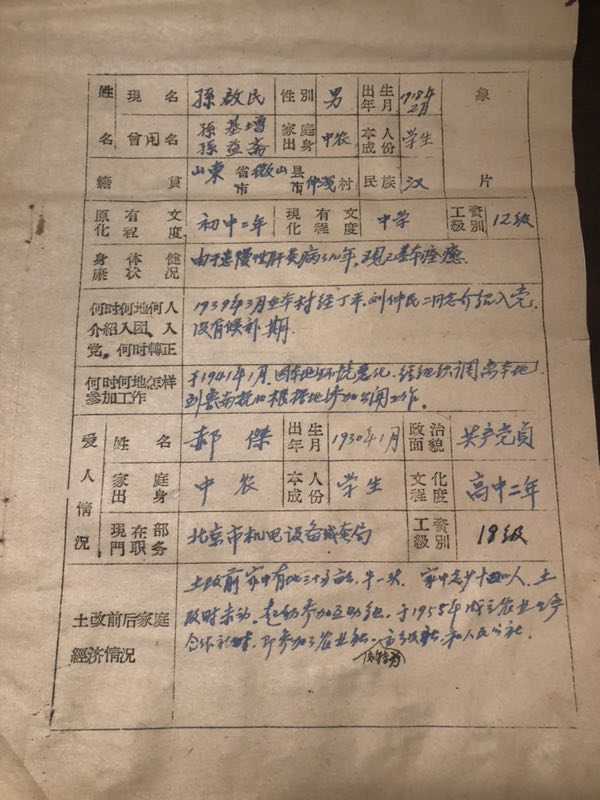 姓名 現名 孫啟民 性別 男 出生年月 1918年2月 象片
曾用名 孫基增 孫益斋 家庭出身 中农 本人成份 学生
籍貫 山東省市 微山县市 村 民族 汉
原有文化程度 初中二年 現有文化程度 中学 工資級別 12級
身体健康状况 由于患慢性肝炎病 年,現已基本痊癒
何时何地何人 1939年3月在本村经丁平、刘仲民二同志介紹入党,
介紹入团、入 没有候补期.
党。何时轉正
何时何地怎样 于1941年1月因本地环境惡化,经组织调离本地,
参加工作 到鲁南抗日根据地参加公開工作。
爱人情况 姓名 郝傑 出生年月 1930年1月 政治面貌 共产党員
家庭出身 中农 本人成份 学生 文化程度 高中二年
現在部門职务 北京市机电设备成套局 工資級別 18级
土改前家中有地三十五亩,牛一头,家中老少十 人,土
土改前后家庭 改时未动。 参加互助组,于1955年成立农业生产
經济情况 合作社时,即参加了农业社、高级社和人民公社。